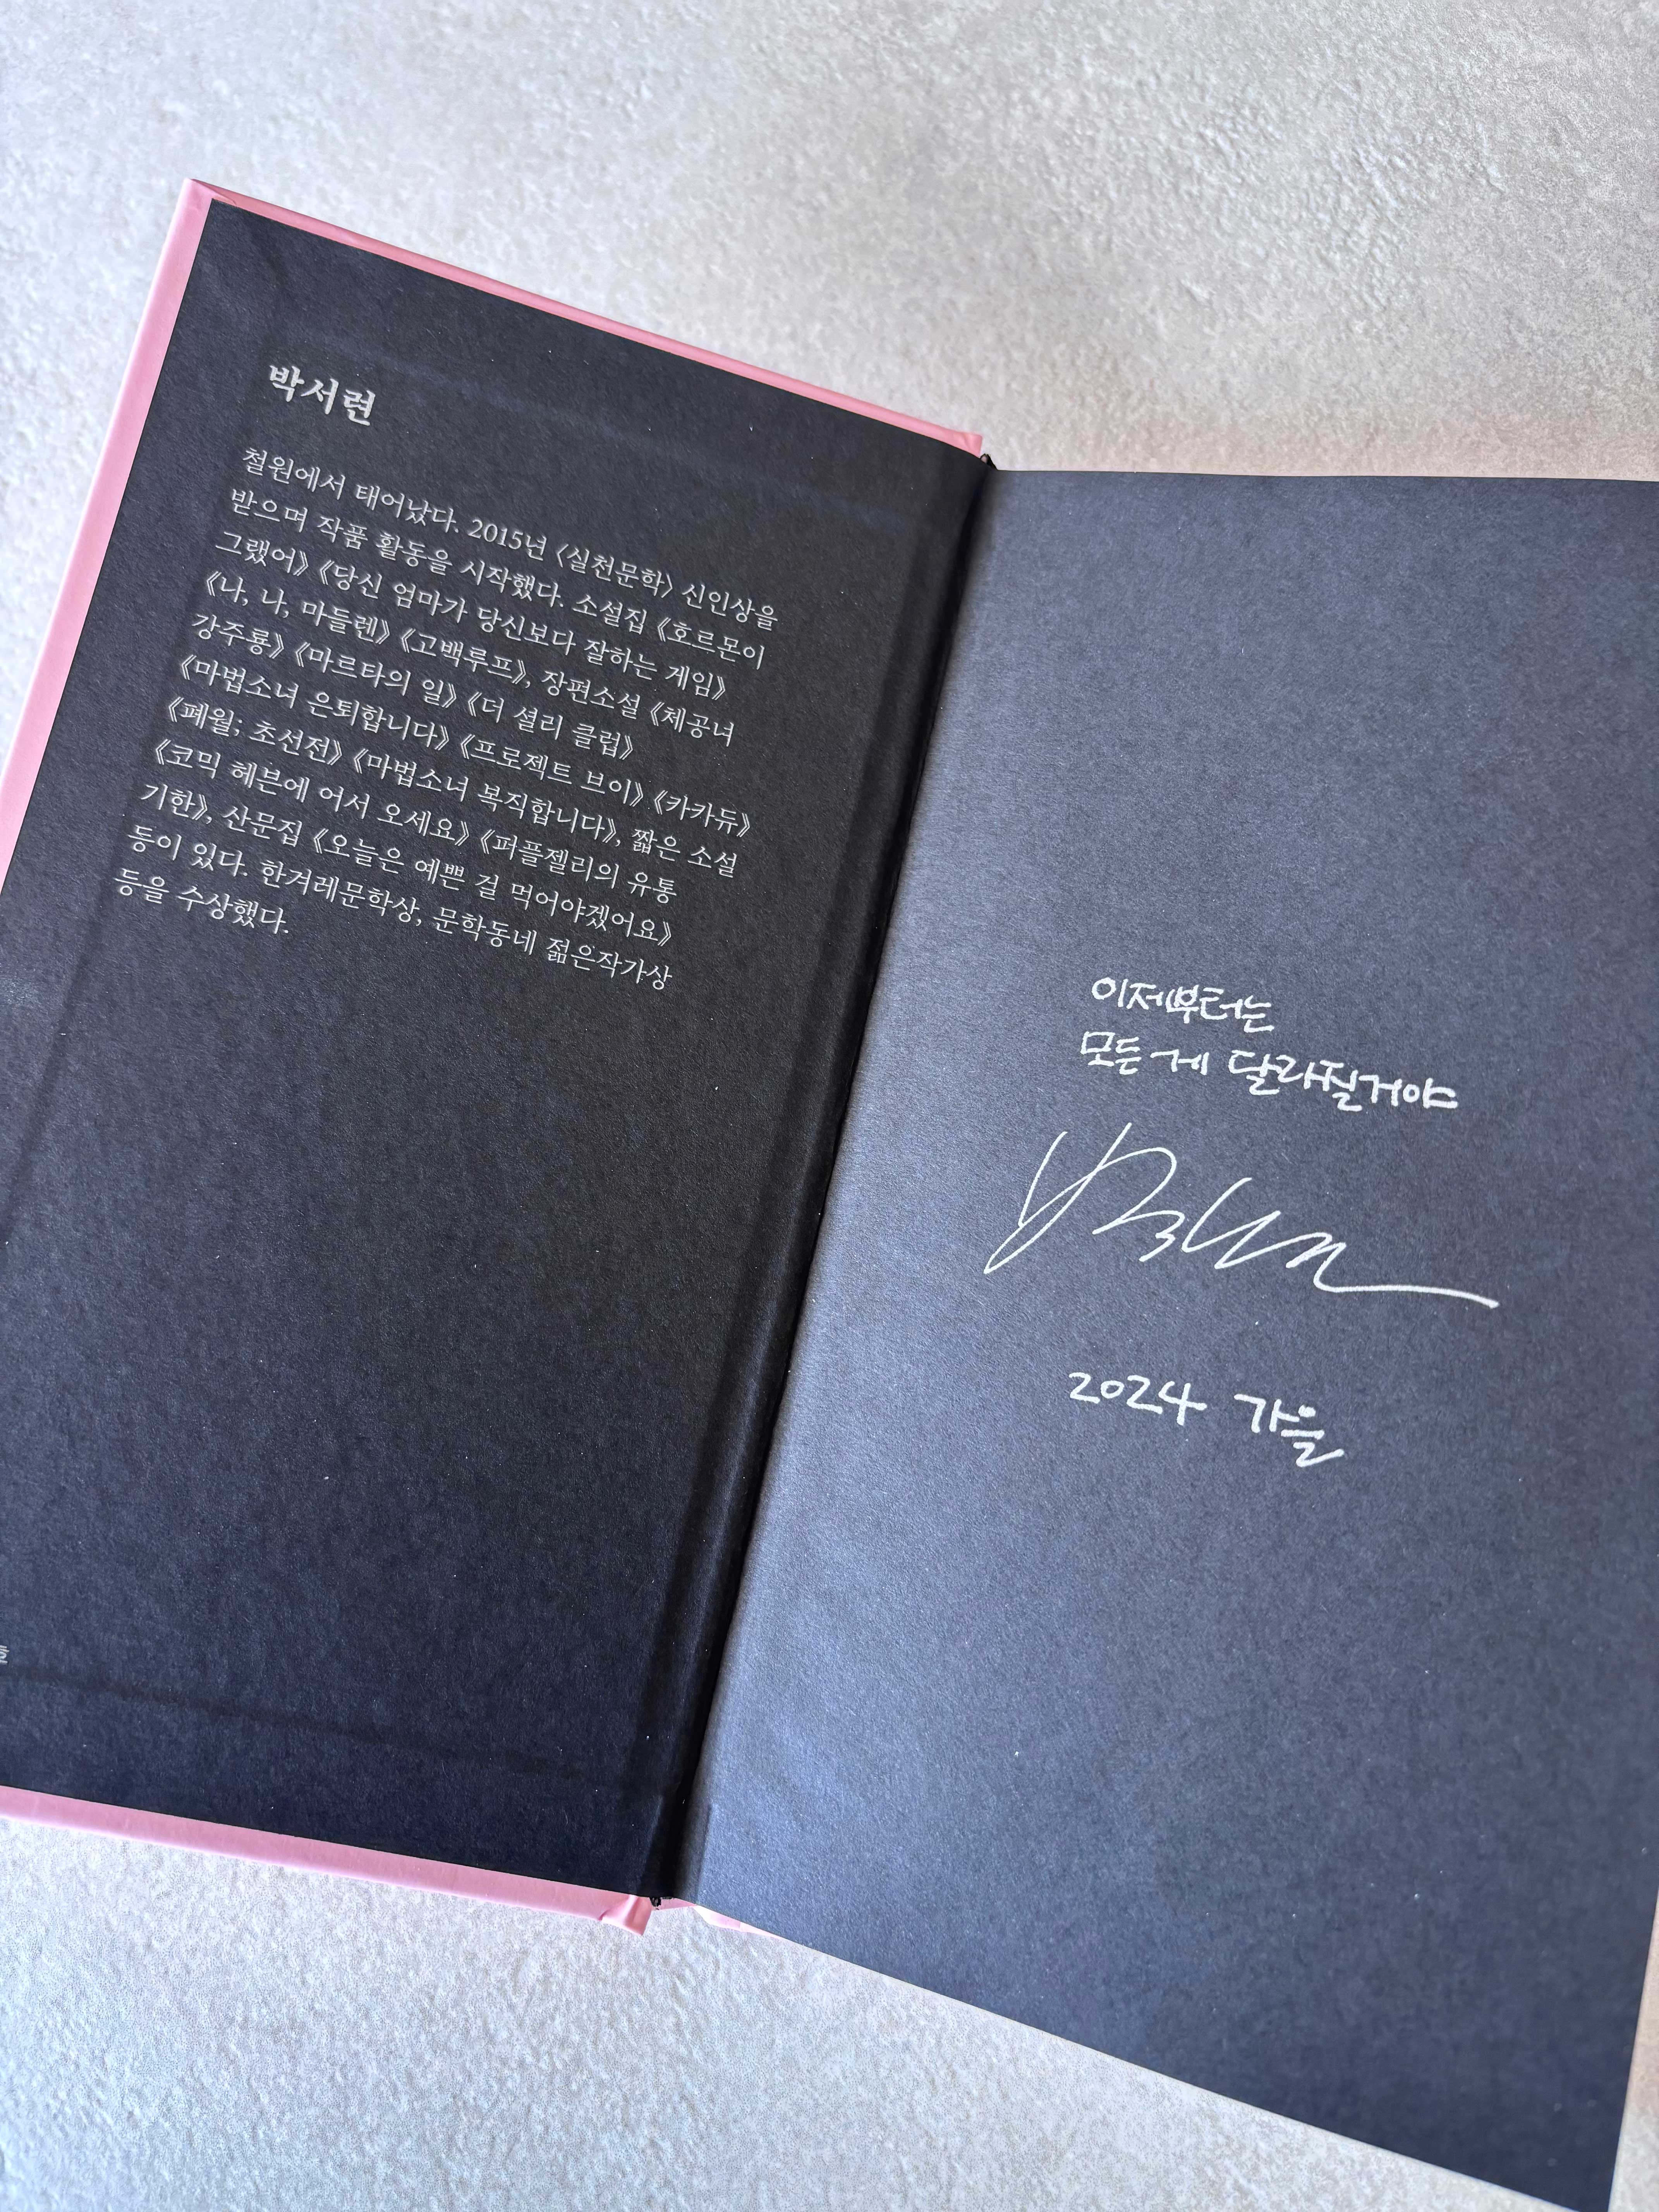 박서련
철원에서 태어났다. 2015년 〈실천문학〉 신인상을
받으며 작품 활동을 시작했다. 소설집 《호르몬이
그랬어》 《당신 엄마가 당신보다 잘하는 게임》
《나, 나, 마들렌》 《고백루프》, 장편소설 《체공녀
강주룡》 《마르타의 일》 《더 셜리 클럽》
《마법소녀 은퇴합니다》 《프로젝트 브이》 《카카듀》
《폐월; 초선전》 《마법소녀 복직합니다》, 짧은 소설
《코믹 헤븐에 어서 오세요》 《퍼플젤리의 유통
기한》, 산문집 《오늘은 예쁜 걸 먹어야겠어요》
등이 있다. 한겨레문학상, 문학동네 젊은작가상
등을 수상했다.
이제부터는
모든 게 달라질거야
2024 가을